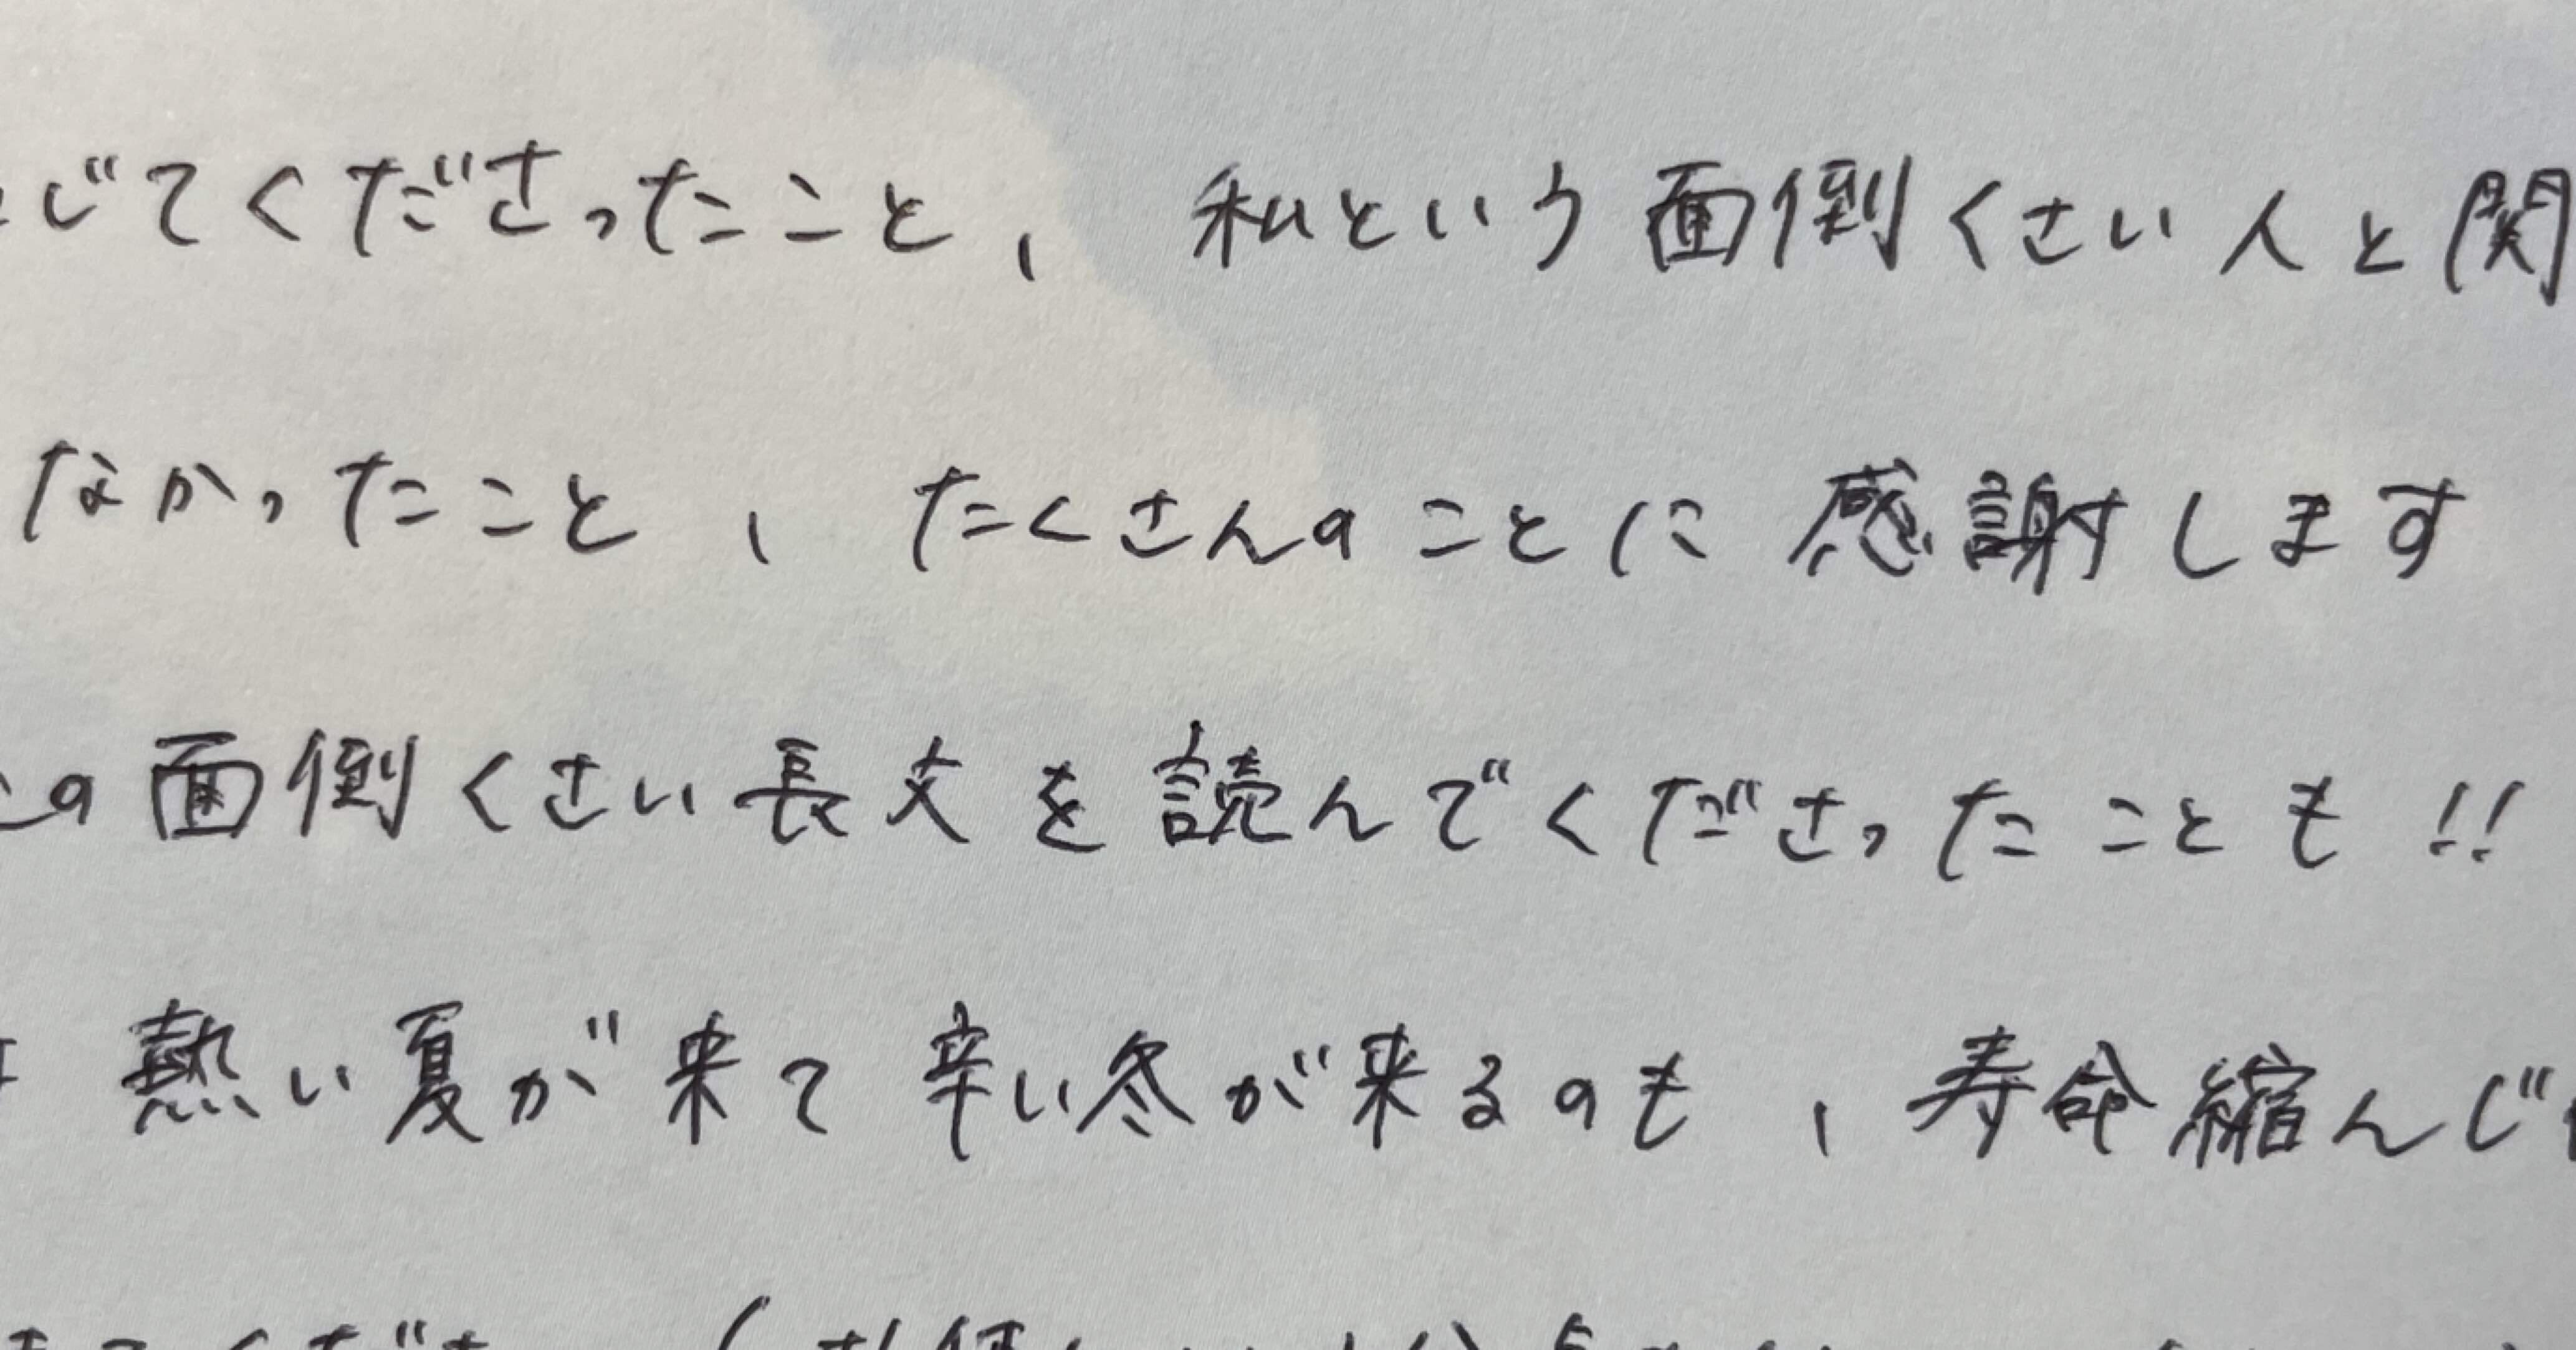 じてくださったこと、私という面倒くさい人と関
なかったこと、たくさんのことに感謝します
の面倒くさい長文を読んでくださったことも!!
熱い夏が来て辛い冬が来るのも、寿命縮んじ